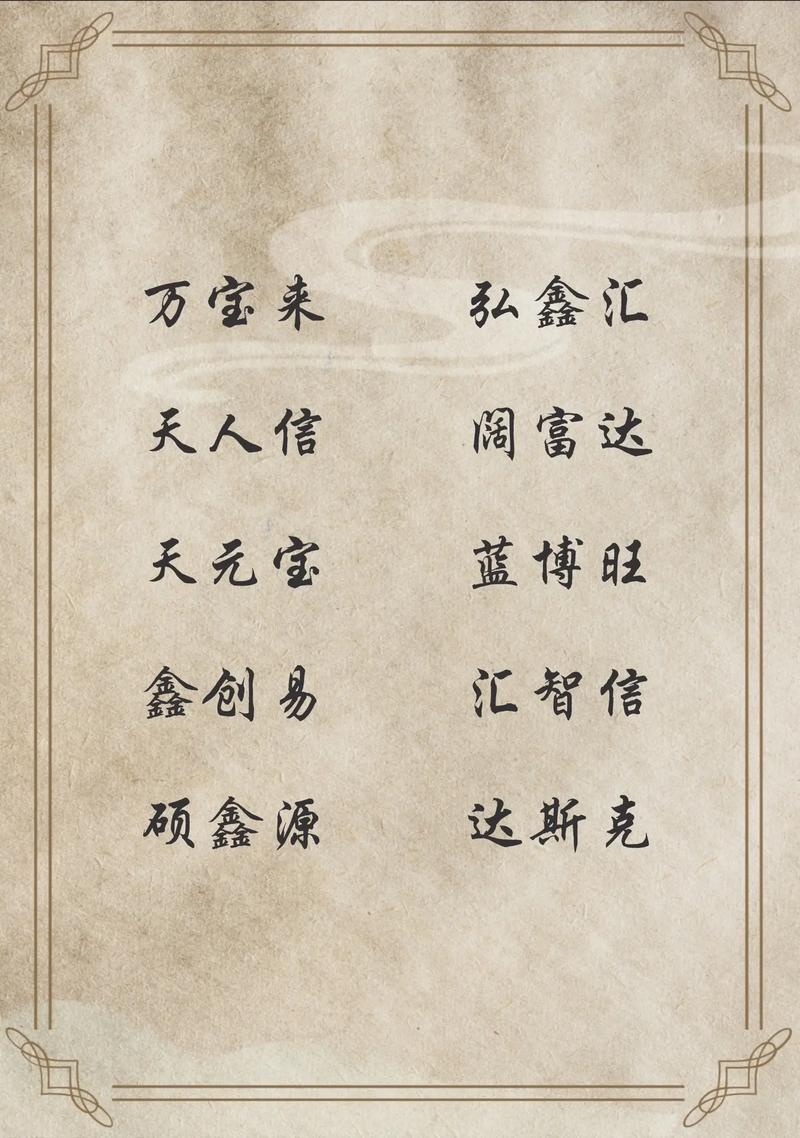 万宝来 弘鑫汇
天人信 阔富达
天元宝 蓝博旺
鑫创易 汇智信
硕鑫源 达斯克